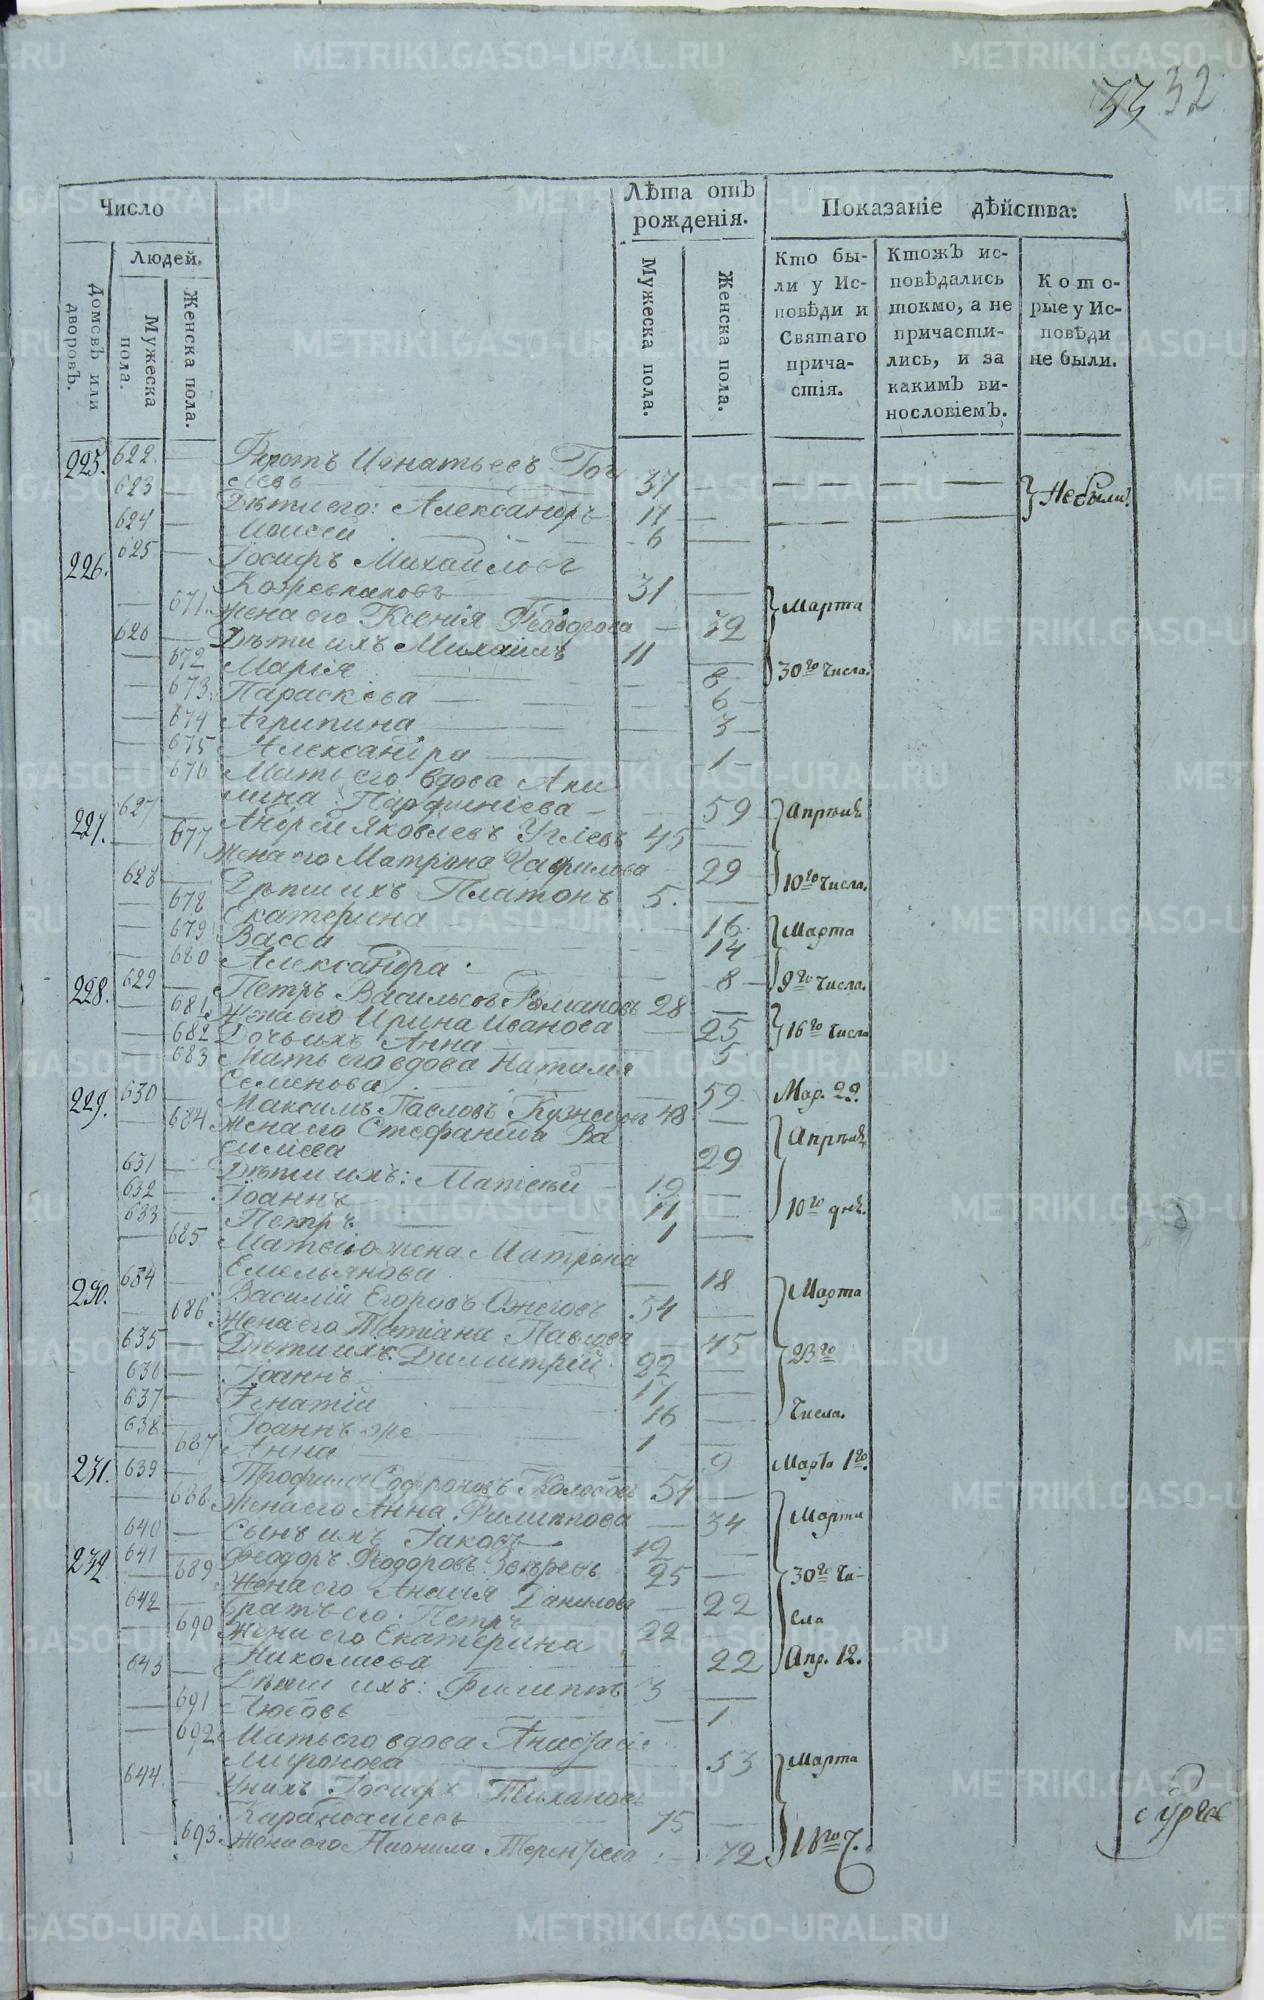 33 32
Число
Лѣта отъ рожденія.
Показаніе дѣйства:
Людей.
Домовъ или дворовъ.
Мужеска пола.
Женска пола.
Мужеска пола.
Женска пола.
Кто были у Исповѣди и Святаго причастія.
Ктожъ исповѣдались токмо, а не причастились, и за какимъ винословіемъ.
Которые у Исповѣди не были.
225. 622 Игнатьевъ
37
Небыли
623 Дѣти его: Александръ 11
624 Моисей 6
226. 625 Іосифъ Михайловъ
31
671. Жена его Ксенія Феодорова 32
Марта
626 Дѣти ихъ Михаилъ 11
672 Марія 8
30го числа.
673. Параскева 6
674 Агрипина 3
675 Александра 1
676 Мать его вдова Аки
лина Парфиніева 59
Апрѣля
227. 627 Андрей Яковлевъ Углевъ 45
677 Жена его Матрона Гаврилова 29
10го числа.
628 Дѣти ихъ Платонъ 5.
678 Екатерина 16
Марта
679 Васса 14
680 Александра 8
9го числа.
228. 629 Петръ Васильевъ Романовъ 28
681 Жена его Ирина Иванова 25
16го числа
682 Дочь ихъ Анна 5
683 Мать его вдова Наталія
Семенова 59
Мар. 22.
229. 630 Максимъ Павловъ Кузнецовъ 48
684 Жена его Стефанида Ва
силіева 29
Апрѣля
631 Дѣти ихъ: Матвѣй 19
632 Іоаннъ 11
633 Петръ 1
10го дня.
685 Матвѣя жена Матрона
Емельянова 18
230. 634 Василій Егоровъ Ожеговъ 54
Марта
686 Жена его Татіана Павлова 45
635 Дѣти ихъ: Димитрій 22
23го
636 Іоаннъ 17
637 Игнатій 16
Числа.
638 Іоаннъ же 1
687 Анна 9
Марта 1го.
231. 639 Трофимъ Софроновъ Колобовъ 54
688 Жена его Анна Филиппова 34
Марта
640 Сынъ ихъ Іаковъ 12
232 641 Феодоръ Феодоровъ Звѣревъ 25
30го Чи-
689 Жена его Анисія Данилова 22
сла
642 Братъ его Петръ 22
690 Жена его Екатерина
Николаева 22
Апр. 12.
643 Дѣти ихъ: Филиппъ 3
691 Любовь 1
692 Мать его вдова Анастасія
Миронова 53
Марта
644 У нихъ Іосифъ Тихановъ
75
693 Жена его Неонила Терентіева 72
18го Ч.